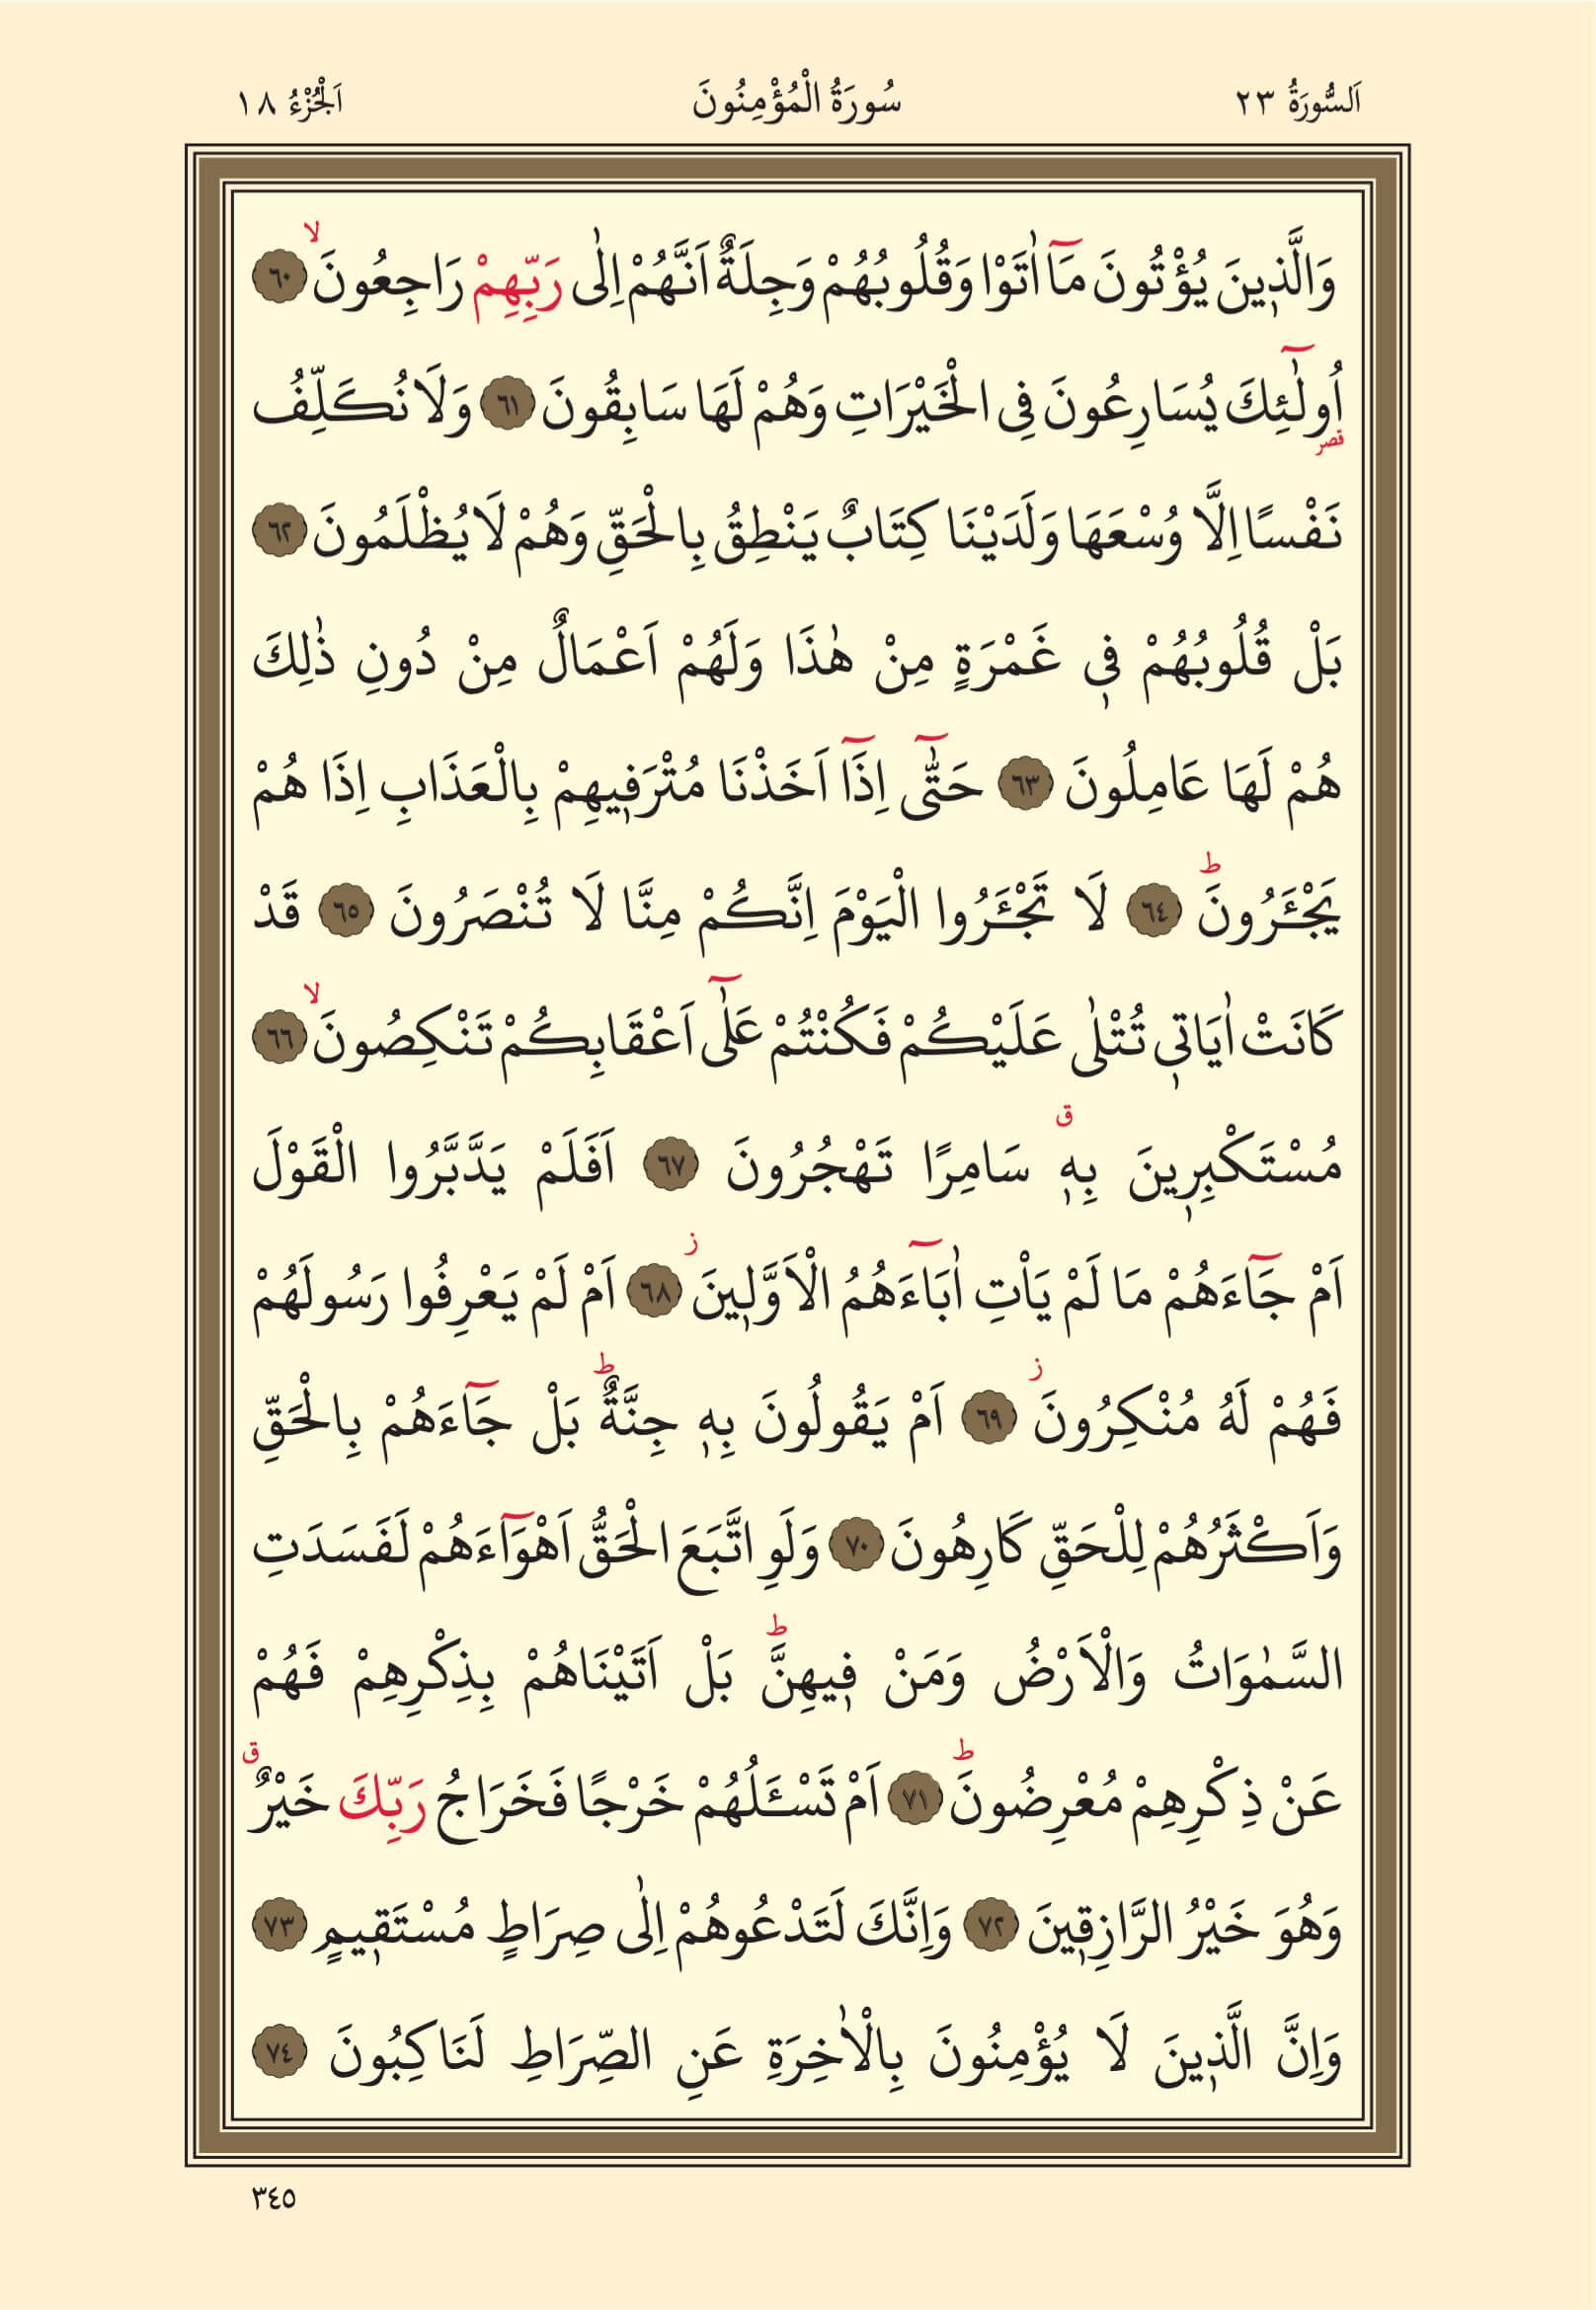 اَلسُّورَةُ ٢٣ سُورَةُ الْمُؤْمِنُونَ اَلْجُزْءُ ١٨
وَالَّذ۪ينَ يُؤْتُونَ مَٓا اٰتَوْا وَقُلُوبُهُمْ وَجِلَةٌ اَنَّهُمْ اِلٰى رَبِّهِمْ رَاجِعُونَۙ ٦٠
اُو۬لٰٓئِكَ يُسَارِعُونَ فِى الْخَيْرَاتِ وَهُمْ لَهَا سَابِقُونَ ٦١ وَلَا نُكَلِّفُ
نَفْسًا اِلَّا وُسْعَهَا وَلَدَيْنَا كِتَابٌ يَنْطِقُ بِالْحَقِّ وَهُمْ لَا يُظْلَمُونَ ٦٢
بَلْ قُلُوبُهُمْ ف۪ى غَمْرَةٍ مِنْ هٰذَا وَلَهُمْ اَعْمَالٌ مِنْ دُونِ ذٰلِكَ
هُمْ لَهَا عَامِلُونَ ٦٣ حَتّٰٓى اِذَٓا اَخَذْنَا مُتْرَف۪يهِمْ بِالْعَذَابِ اِذَا هُمْ
يَجْـَٔرُونَۜ ٦٤ لَا تَجْـَٔرُوا الْيَوْمَ اِنَّكُمْ مِنَّا لَا تُنْصَرُونَ ٦٥ قَدْ
كَانَتْ اٰيَات۪ى تُتْلٰى عَلَيْكُمْ فَكُنْتُمْ عَلٰٓى اَعْقَابِكُمْ تَنْكِصُونَۙ ٦٦
مُسْتَكْبِر۪ينَ بِه۪ۗ سَامِرًا تَهْجُرُونَ ٦٧ اَفَلَمْ يَدَّبَّرُوا الْقَوْلَ
اَمْ جَٓاءَهُمْ مَا لَمْ يَاْتِ اٰبَٓاءَهُمُ الْاَوَّل۪ينَۘ ٦٨ اَمْ لَمْ يَعْرِفُوا رَسُولَهُمْ
فَهُمْ لَهُ مُنْكِرُونَۘ ٦٩ اَمْ يَقُولُونَ بِه۪ جِنَّةٌۜ بَلْ جَٓاءَهُمْ بِالْحَقِّ
وَاَكْثَرُهُمْ لِلْحَقِّ كَارِهُونَ ٧٠ وَلَوِ اتَّبَعَ الْحَقُّ اَهْوَٓاءَهُمْ لَفَسَدَتِ
السَّمٰوَاتُ وَالْاَرْضُ وَمَنْ ف۪يهِنَّۜ بَلْ اَتَيْنَاهُمْ بِذِكْرِهِمْ فَهُمْ
عَنْ ذِكْرِهِمْ مُعْرِضُونَۜ ٧١ اَمْ تَسْـَٔلُهُمْ خَرْجًا فَخَرَاجُ رَبِّكَ خَيْرٌۗ
وَهُوَ خَيْرُ الرَّازِق۪ينَ ٧٢ وَاِنَّكَ لَتَدْعُوهُمْ اِلٰى صِرَاطٍ مُسْتَق۪يمٍ ٧٣
وَاِنَّ الَّذ۪ينَ لَا يُؤْمِنُونَ بِالْاٰخِرَةِ عَنِ الصِّرَاطِ لَنَاكِبُونَ ٧٤
٣٤٥